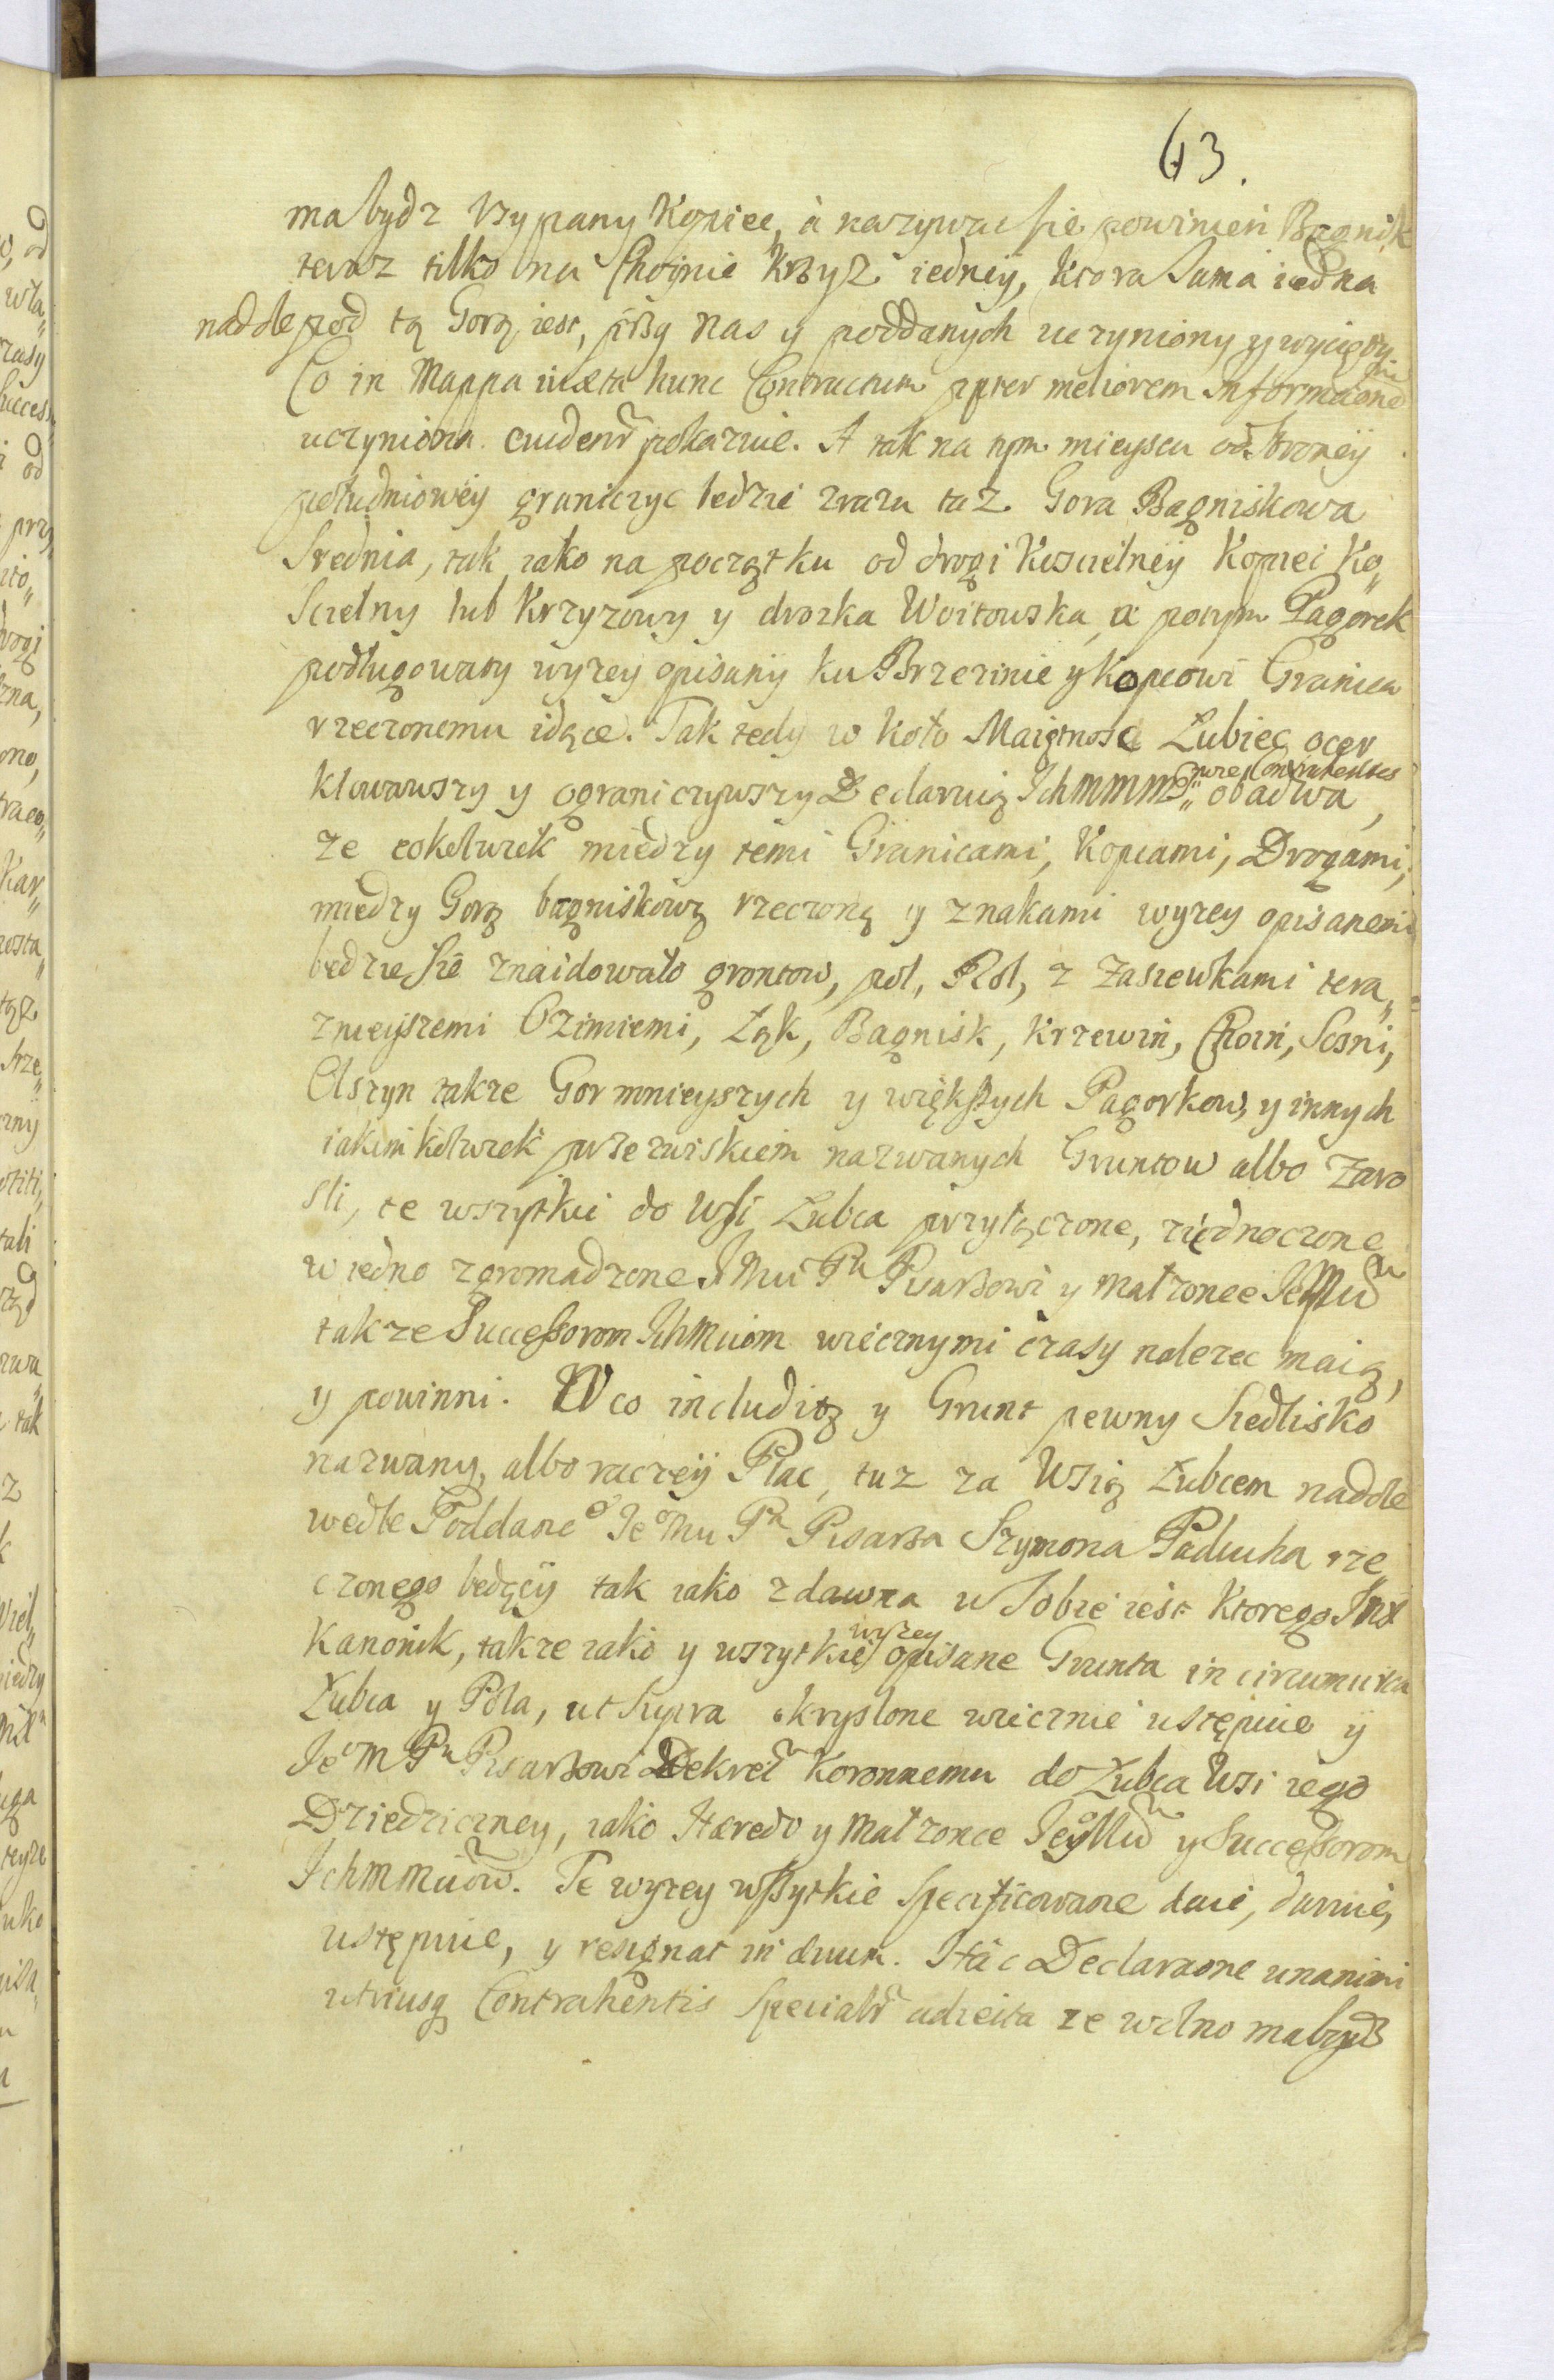 63.
ma bydz Vsypany Kopiec, à nazywac się powinien Bagnisk
teraz tilko na Choynie krzyz iedney, ktora Sama iedna
naddle pod tą Gorą iest, przy nas y poddanych uczyniony y wycięty.
Co in Mappa iuxta hunc Contractum propter meliorem Informaone
uczyniona evidenr pokazuie. A tak na tym mieyscu od Stroney
południowey graniczyc będzie zrazu taz Gora Bagniskowa
Srednia, tak iako na początku od drogi Koscielney Kopiec Ko„
Scielny lub Krzyzowy y drozka Woitowska, a potym Pagorek
podługowaty wyzey opisany ku Brzezinie y Kopcowi Granica
rzeczonemu idące. Tak tedy w koło Maiętnosc Lubiec ocer
klowawszy y ograniczywszy Declaruią Ichmmm Pu obadwa,
ze cokolwiek między temi Granicami, Kopcami, Drogami,
między Gorą bagniskową rzeczoną y znakami wyzey opisanemi
będzie się znaidowało grontow, pol, Rol, z Zasiewkami tera„
znieyszemi Ozimiemi, Łąk, Bagnisk, Krzewin, Choin, Sosni,
Olszyn takze Gor mnieyszych y większych Pagorkow, y innych
iakimkolwiek przezwiskiem nazwanych Gruntow albo Zaro
sli, te wszytkie do Wsi Lubca przyłączone, ziednoczone
w iedno zgromadzone JMci Pu Pisarzowi y małzonce Ieymci
takze Successorom Ichmciom wiecznymi czasy nalezec maią,
y powinni. W co includitą y Grunt pewny Siedlisko
nazwany, albo raczey Plac, tuz za Wsią Lubcem naddle
wedle Poddanego Ieomu Pa Pisarza Szymona Paducha rze„
czonego będący tak iako zdawna w Sobie iest ktorego Jmx
Kanonik, takze iako y wszytkie wyzey opisane Grunta in circumuita
Lubca y Pola, ut Supra okryslone wiecznie ustępuie y
Ieom Pu Pisarzowi Dekret Koronnemu do Lubca Wsi iego
Dziedziczney, iako Hæredo y małzonce Ieymci y Successorom
Ichmmciow. Te wyzey wszytkie Specificowane daie, daruie,
ustępuie, y resignat in ævum. Hac Declaraone unanimi
utriusq Contrahentis Specialr adiecta ze wolno ma bydz